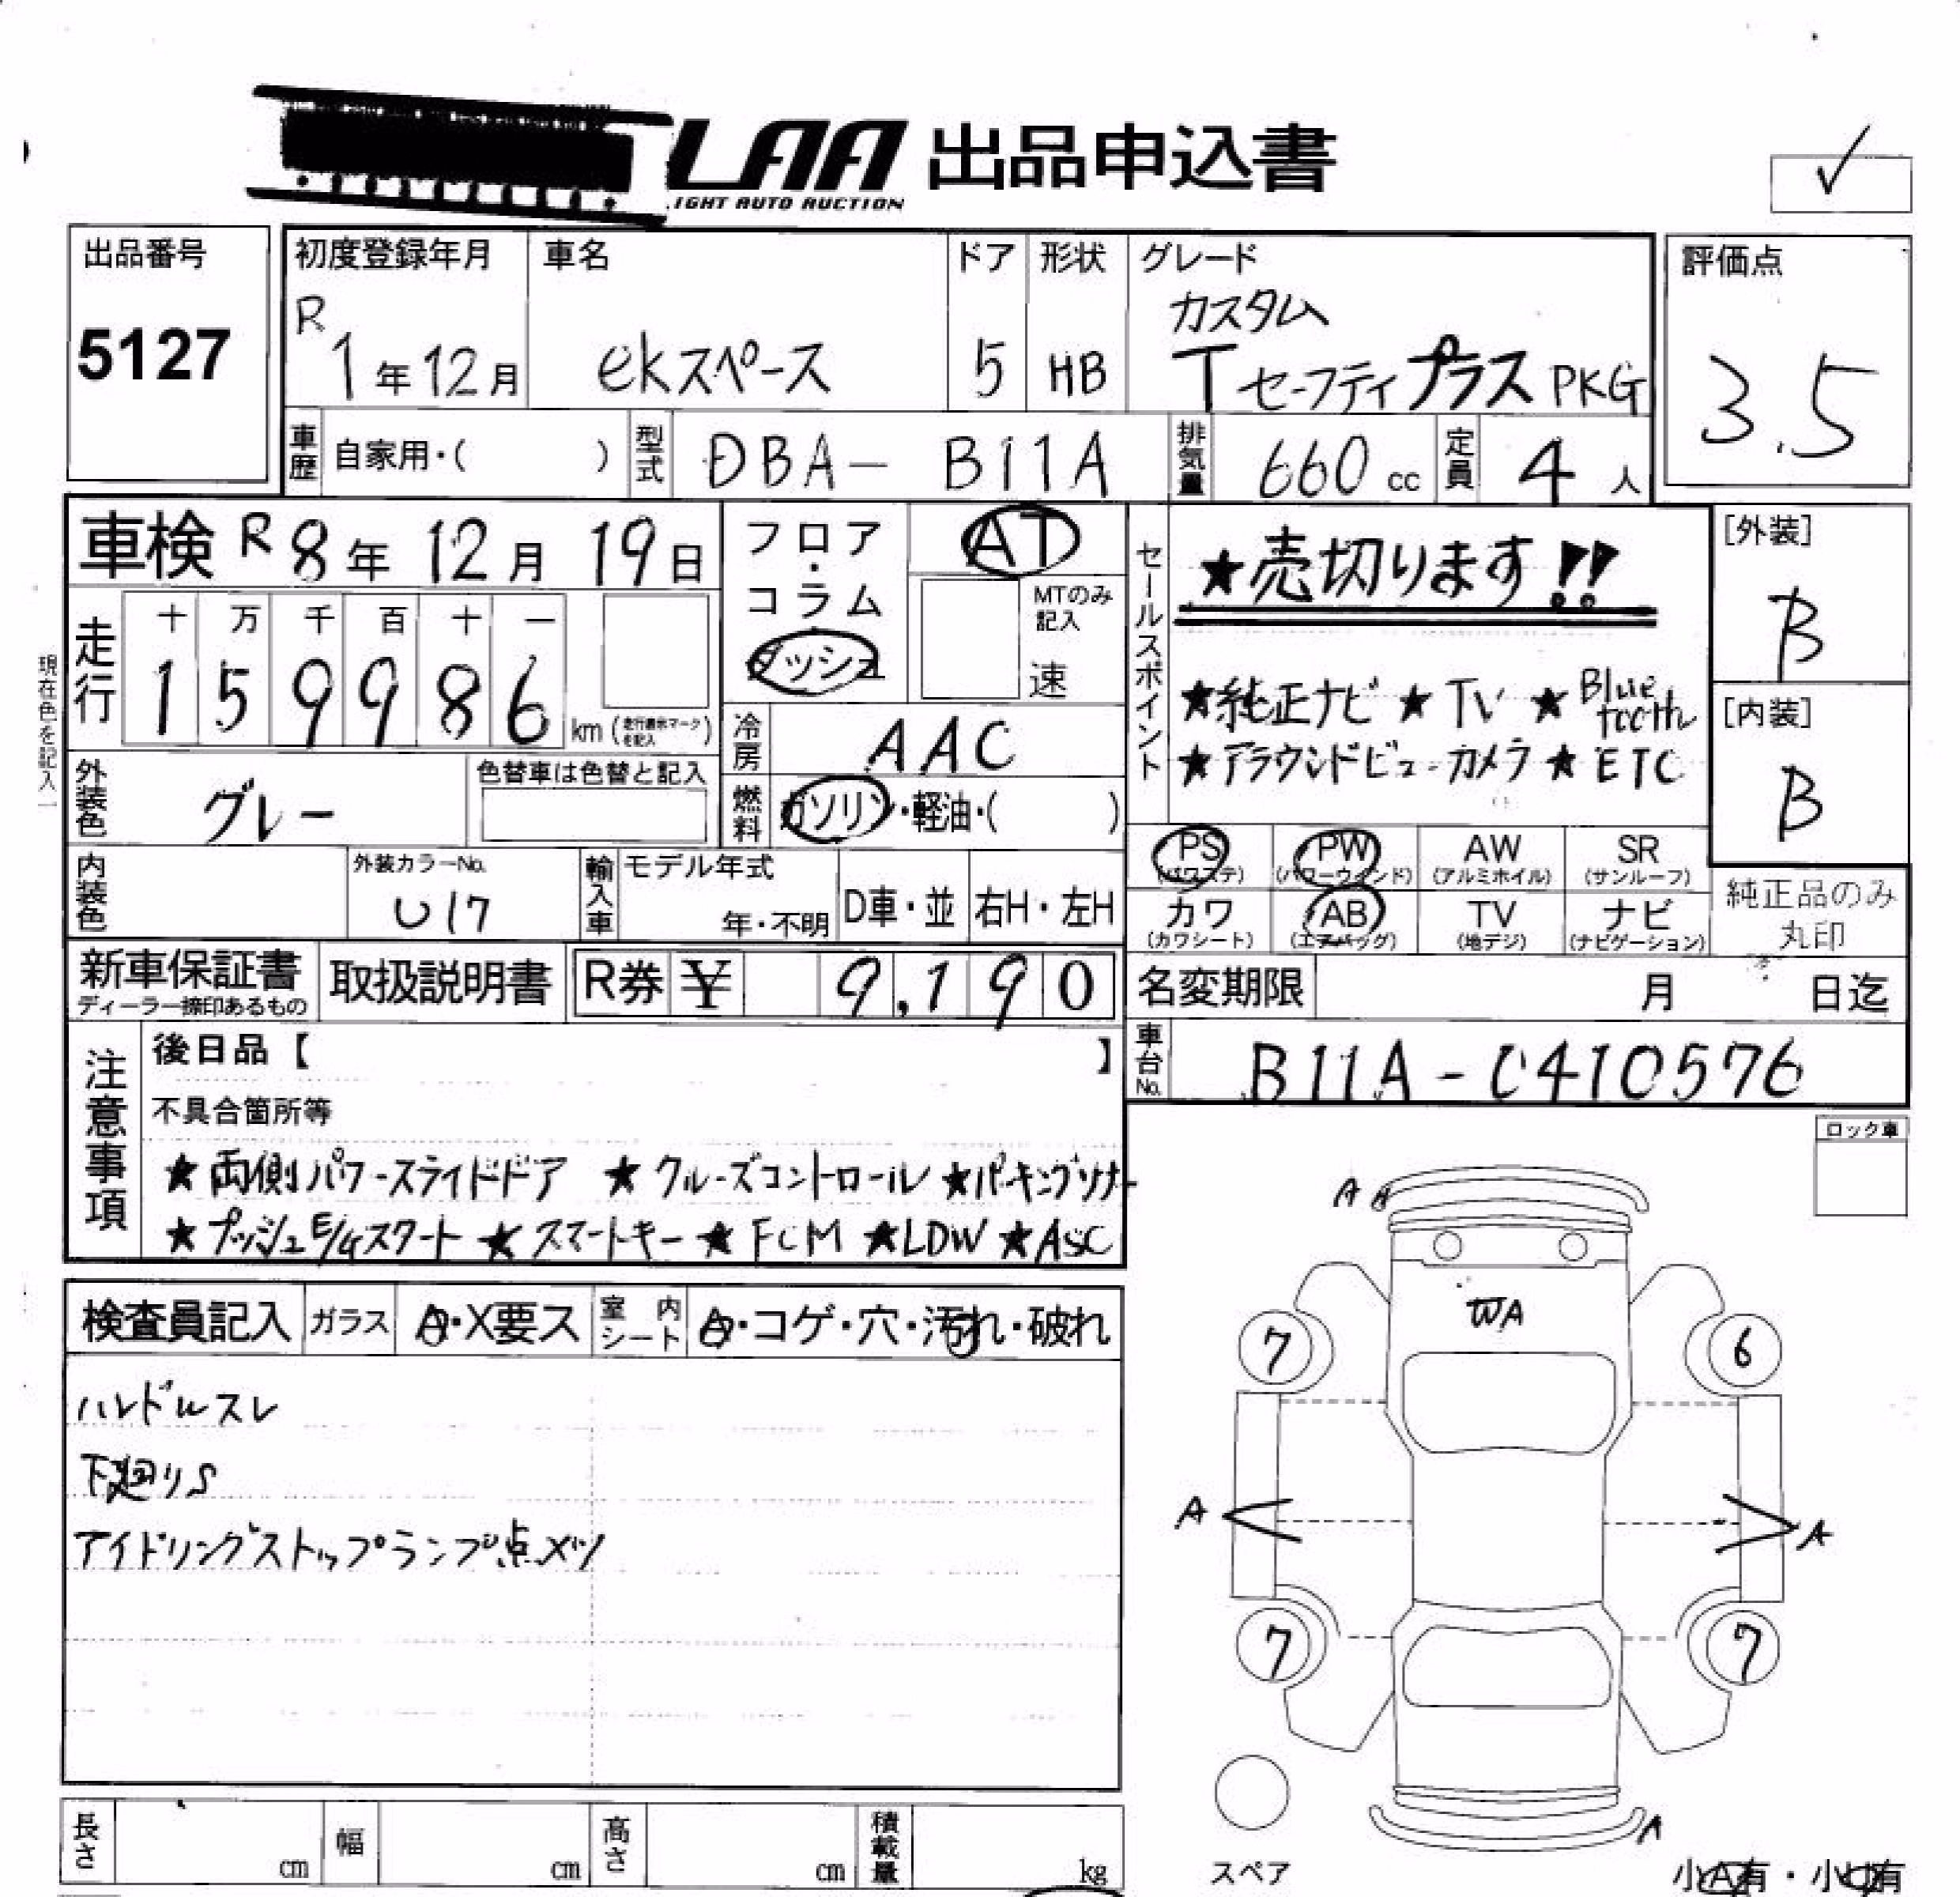 LAA 出品申込書
LIGHT AUTO AUCTION
✓
出品番号
5127
初度登録年月
R
1年12月
車名
ekスペース
ドア
5
形状
HB
グレード
カスタム
TセーフティプラスPKG
評価点
3.5
車歴 自家用・( )
型式 DBA- B11A
排気量 660 cc
定員 4人
車検 R8年 12月 19日
走行
十 万 千 百 十 一
1 5 9 9 8 6 km (走行表示マークを記入)
現在色を記入
フロア・コラム
ダッシュ
AT
MTのみ記入
速
冷房 AAC
燃料 ガソリン・軽油・( )
外装色 グレー
色替車は色替と記入
内装色
外装カラーNo.
U17
輸入車
モデル年式
年・不明
D車・並
右H・左H
セールスポイント
★売切ります!!
★純正ナビ ★TV ★Bluetooth
★アラウンドビューカメラ ★ETC
[外装]
B
[内装]
B
PS (パワステ)
PW (パワーウインド)
AW (アルミホイル)
SR (サンルーフ)
カワ (カワシート)
AB (エアバッグ)
TV (地デジ)
ナビ (ナビゲーション)
純正品のみ
丸印
新車保証書
ディーラー捺印あるもの
取扱説明書
R券 ¥ 9,190
名変期限 月 日迄
車台No. B11A-0410576
注意事項
後日品【 】
不具合箇所等
★両側パワースライドドア ★クルーズコントロール ★パーキングソナー
★プッシュE/Gスタート ★スマートキー ★FCM ★LDW ★ASC
ロック車
検査員記入
ガラス A・X要ス
室内シート A・コゲ・穴・汚れ・破れ
ハンドルスレ
下廻りS
アイドリングストップランプ点メツ
A A
WA
7 6
A A
7 7
A
スペア
小A有・小U有
長さ cm
幅 cm
高さ cm
積載量 kg